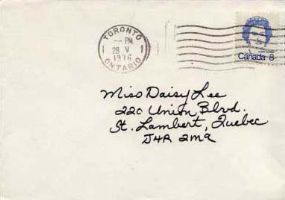 TORONTO
PM
28 V
1976
ONTARIO
Canada 8
Miss Daisy Lee
220 Union Blvd.
St. Lambert, Quebec
J4R 2M9